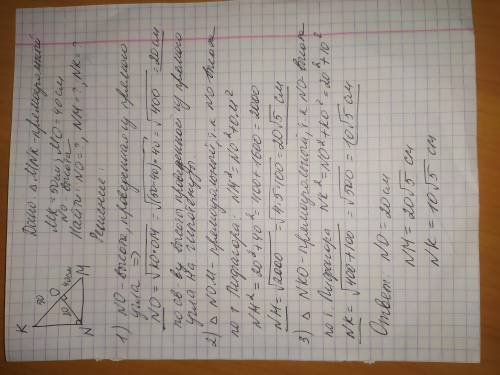 K
10
O
40см
20
N
M
Дано: △ MNK - прямоугольный
MK = 50см; MO = 40см
NO высота
Найти: NO = ?, NM = ?, NK = ?
Решение:
1) NO - высота, проведенная из прямого
угла =>
NO = √KO·OM = √(50-40)·40 = √400 = 20см
по св. ву высоты проведенной из прямого
угла на гипотенузу
2) △ NOM - прямоугольный, т.к NO-высота
по т. Пифагора: NM² = NO² + OM²
NM² = 20² + 40² = 400 + 1600 = 2000
NM = √2000 = √4·5·100 = 20√5 см
3) △ NKO - прямоугольный, т.к NO-высота
по т. Пифагора NK² = NO² + KO² = 20² + 10²
NK = √400+100 = √500 = 10√5 см
Ответ: NO = 20см
NM = 20√5 см
NK = 10√5 см